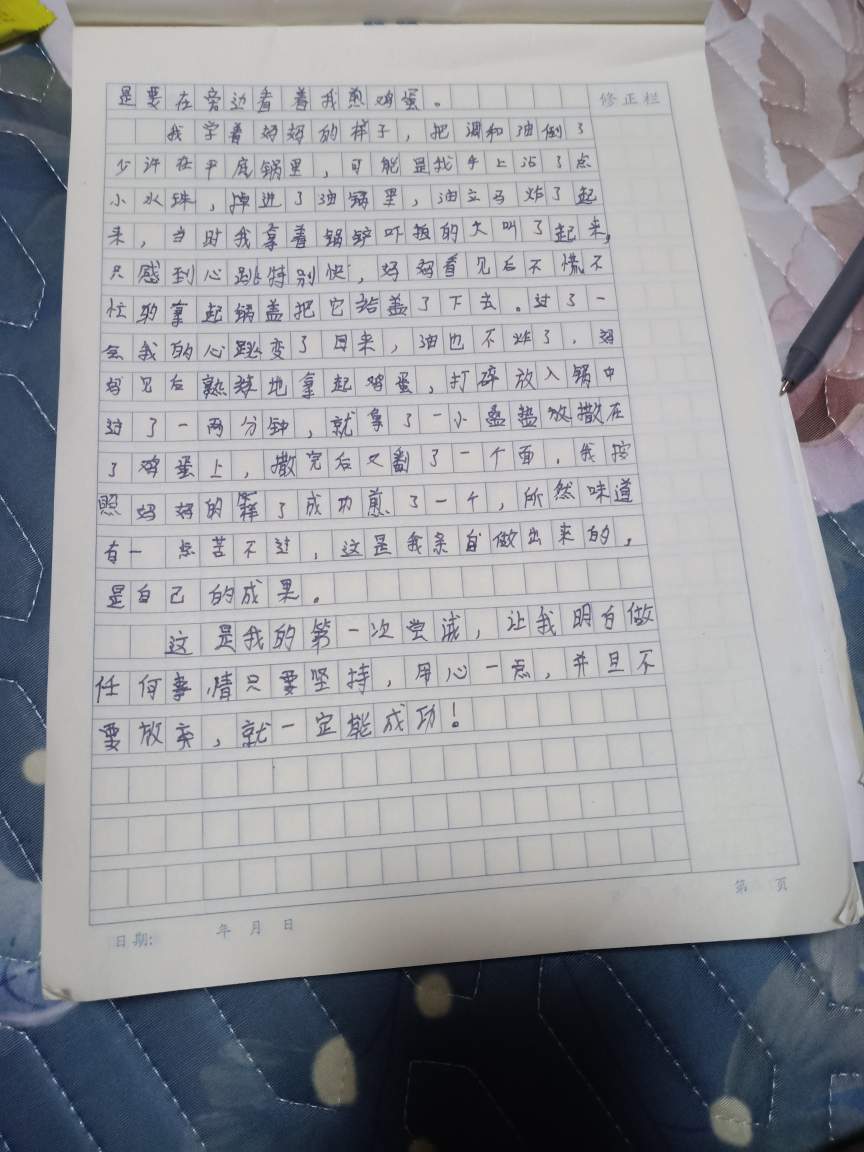 是要在旁边看着我煎鸡蛋。
修正栏
我学着妈妈的样子，把调和油倒了
少许在平底锅里，可能是我手上沾了点
小水珠，掉进了油锅里，油立马炸了起
来，当时我拿着锅铲吓报的大叫了起来，
只感到心跳特别快，妈妈看见后不慌不
忙的拿起锅盖把它给盖了下去。过了一
会我的心跳变了回来，油也不炸了．妈
妈见后熟练地拿起鸡蛋，打碎放入锅中
过了一两分钟，就拿了一小盐放撒在
了鸡蛋上，撒完后又翻了一个面．我按
照妈妈的了成功煎了一个，所然味道
有一点苦不过，这是我亲自做出来的，
是自己的成果。
这是我的第一次尝试，让我明白做
任何事情只要坚持，用心一点，并且不
要放弃，就一定能成功！
第 页
日期: 年 月 日